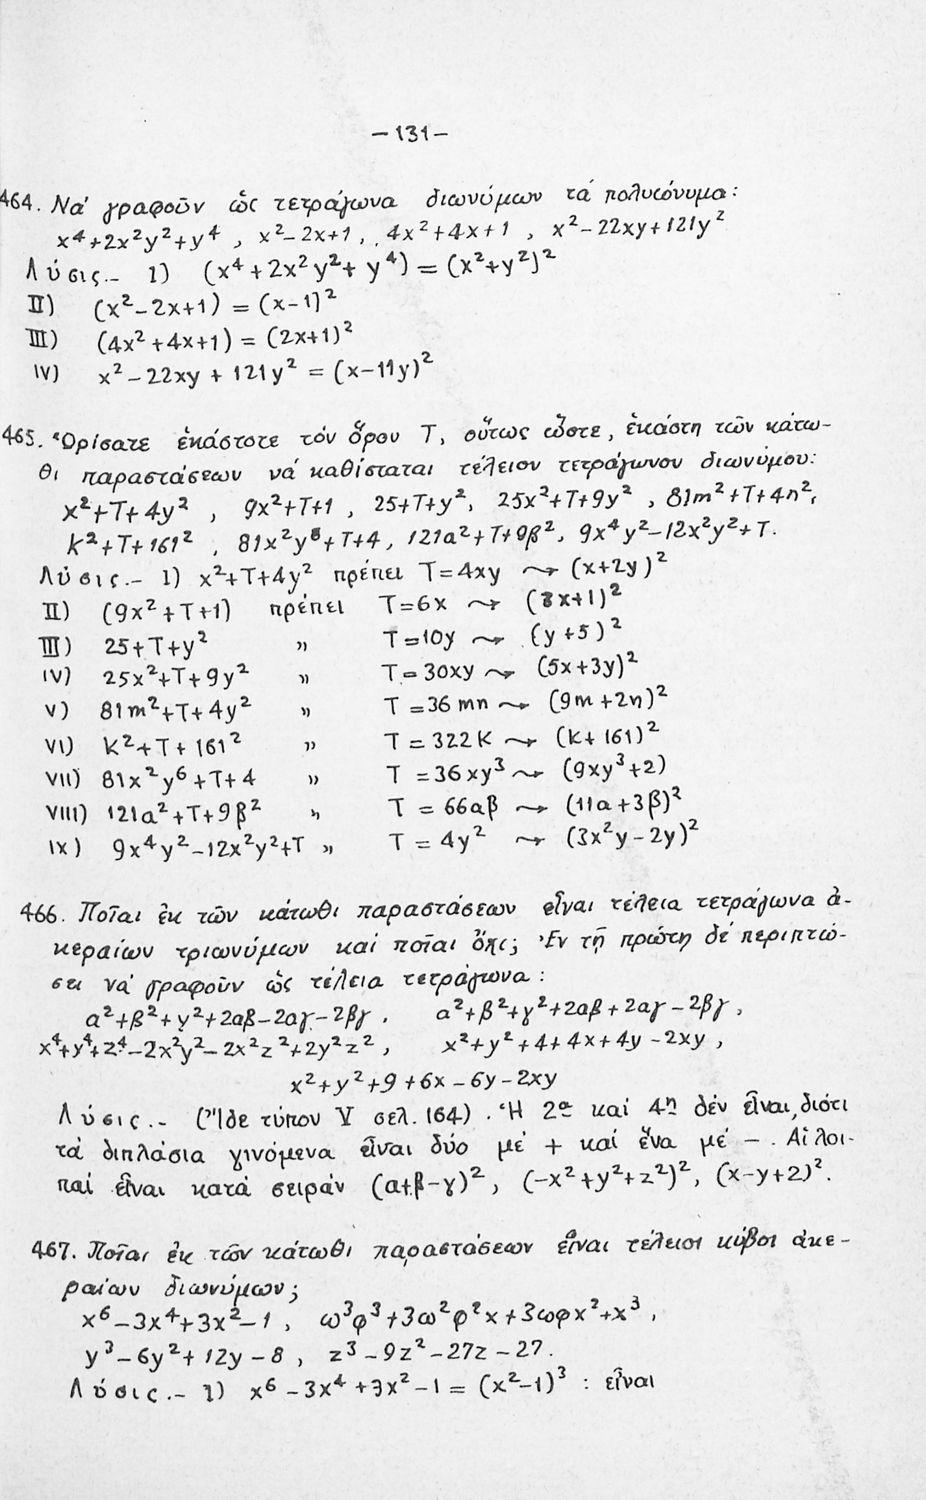 -131-
464. Νά γραφοῦν ὡς τετράγωνα διωνύμων τά πολυώνυμα:
x⁴+2x²y²+y⁴ , x²-2x+1, 4x²+4x+1 , x²-22xy+121y²
Λύσις.- 1) (x⁴+2x²y²+y⁴) = (x²+y²)²
II) (x²-2x+1) = (x-1)²
III) (4x²+4x+1) = (2x+1)²
IV) x²-22xy+121y² = (x-11y)²
465. Ὁρίσατε ἑκάστοτε τόν ὅρον T, οὕτως ὥστε, ἑκάστη τῶν κάτω-
θι παραστάσεων νά καθίσταται τέλειον τετράγωνον διωνύμου:
x²+T+4y² , 9x²+T+1 , 25+T+y², 25x²+T+9y² , 81m²+T+4n²,
k²+T+161² , 81x²y⁶+T+4, 121α²+T+9β², 9x⁴y²-12x²y²+T.
Λύσις.- 1) x²+T+4y² πρέπει T=4xy ⤳ (x+2y)²
II) (9x²+T+1) πρέπει T=6x ⤳ (3x+1)²
III) 25+T+y² " T=10y ⤳ (y+5)²
IV) 25x²+T+9y² " T=30xy ⤳ (5x+3y)²
V) 81m²+T+4y² " T=36mn ⤳ (9m+2n)²
VI) k²+T+161² " T=322k ⤳ (k+161)²
VII) 81x²y⁶+T+4 " T=36xy³ ⤳ (9xy³+2)
VIII) 121α²+T+9β² " T=66αβ ⤳ (11α+3β)²
IX) 9x⁴y²-12x²y²+T " T=4y² ⤳ (3x²y-2y)²
466. Ποῖαι ἐκ τῶν κάτωθι παραστάσεων εἶναι τέλεια τετράγωνα ἀ-
κεραίων τριωνύμων καί ποῖαι ὄχι; Ἐν τῇ πρώτη δέ περιπτώ-
σει νά γραφοῦν ὡς τέλεια τετράγωνα:
α²+β²+γ²+2αβ-2αγ-2βγ , α²+β²+γ²+2αβ+2αγ-2βγ ,
x⁴+y⁴+z⁴-2x²y²-2x²z²+2y²z² , x²+y²+4+4x+4y-2xy ,
x²+y²+9+6x-6y-2xy
Λύσις.- (Ἴδε τύπον V σελ. 164). Ἡ 2α καί 4η δέν εἶναι, διότι
τά διπλάσια γινόμενα εἶναι δύο μέ + καί ἕνα μέ -. Αἱ λοι-
παί εἶναι κατά σειράν (α+β-γ)², (-x²+y²+z²)², (x-y+2)².
467. Ποῖαι ἐκ τῶν κάτωθι παραστάσεων εἶναι τέλειοι κύβοι ἀκε-
ραίων διωνύμων;
x⁶-3x⁴+3x²-1 , ω³φ³+3ω²φ²x+3ωφx²+x³ ,
y³-6y²+12y-8 , z³-9z²-27z-27.
Λύσις.- 1) x⁶-3x⁴+3x²-1 = (x²-1)³ : εἶναι